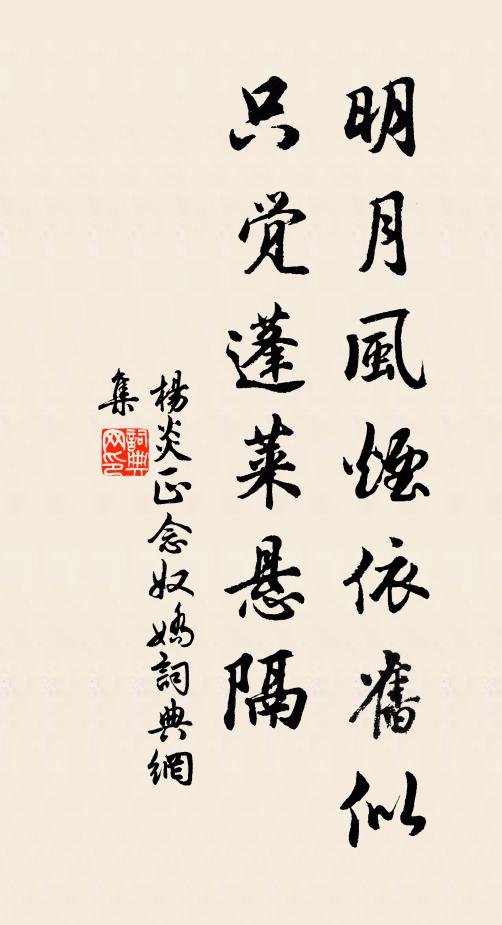 明月風煙依舊似
只覚蓬萊懸隔
楊炎正念奴嬌詞典網
集
詞典網印